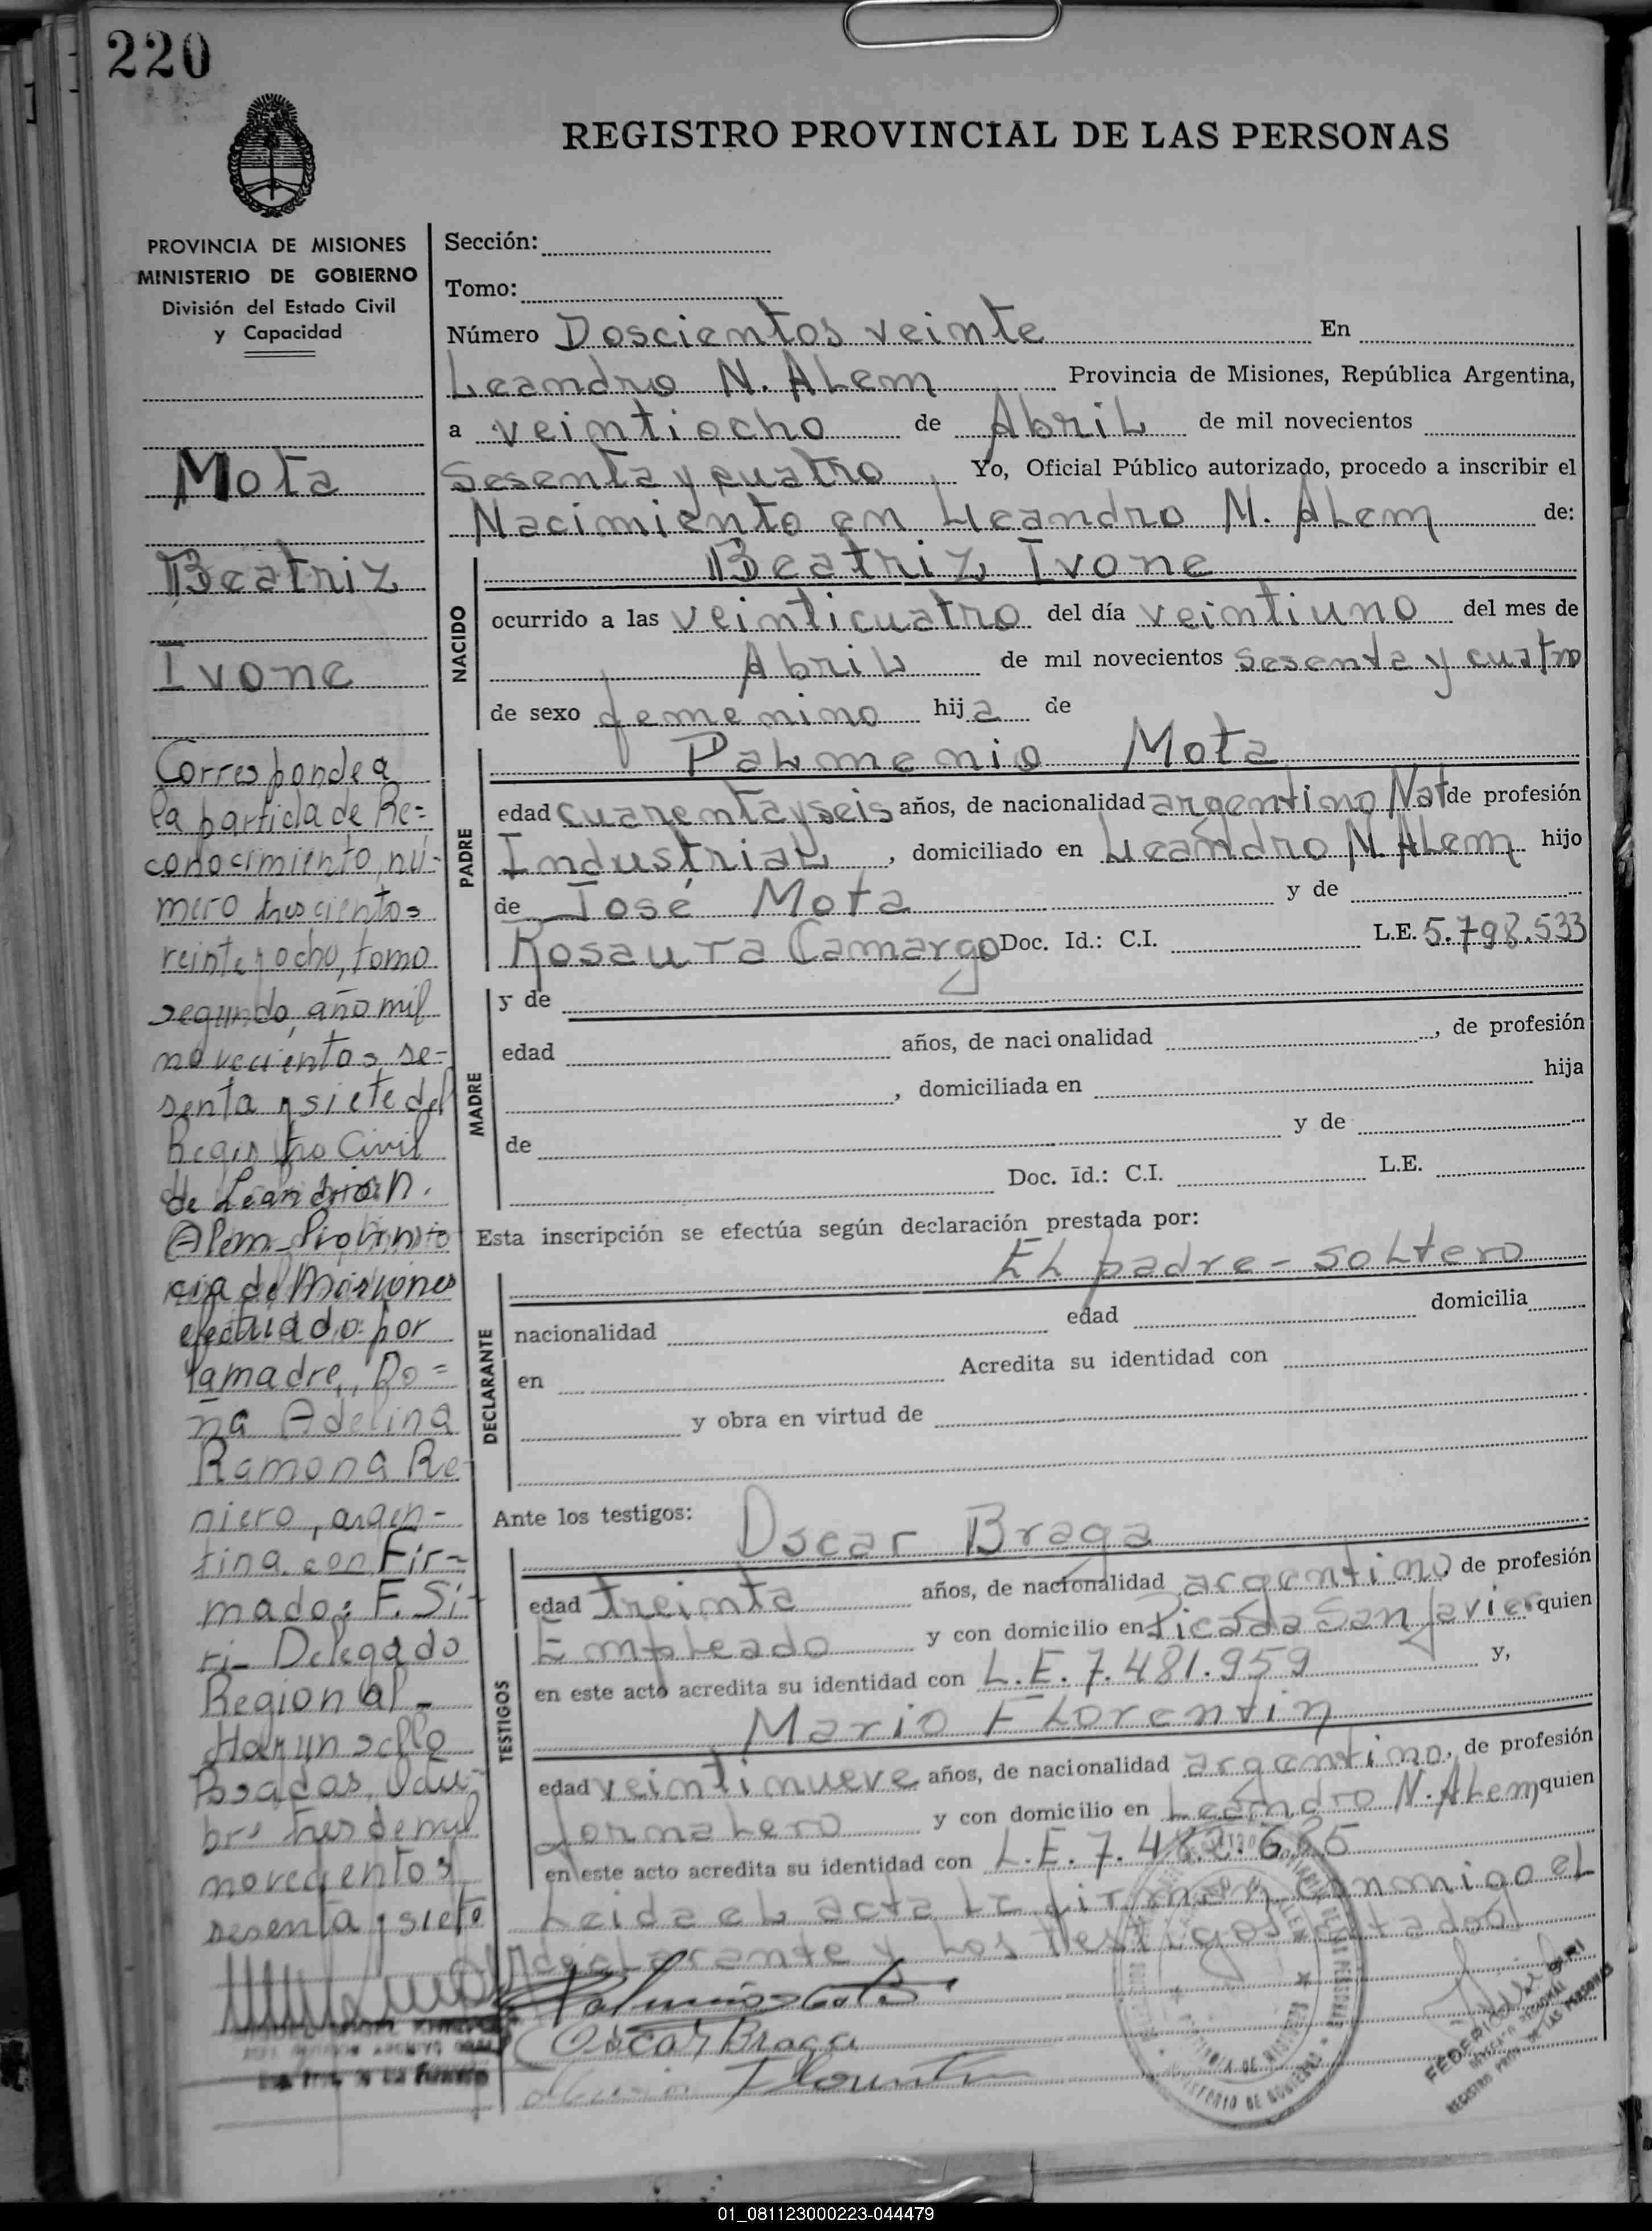 220
REGISTRO PROVINCIAL DE LAS PERSONAS
PROVINCIA DE MISIONES
MINISTERIO DE GOBIERNO
División del Estado Civil
y Capacidad
Mota
Beatriz
Ivone
Corresponde a
la partida de Re=
conocimiento, nú-
mero trescientos
veinte y ocho, tomo
segundo, año mil
novecientos se-
senta y siete del
Registro Civil
de Leandro N.
Alem - Provin
cia de Misiones
efectuado por
la madre, Do=
ña Adelina
Ramona Re-
niero, argen-
tina con Fir-
mado: F. Si-
ri - Delegado
Regional -
Hay un sello
Posadas,
bre tres de mil
novecientos
sesenta y siete
Sección:
Tomo:
Número Doscientos veinte En
Leandro N. Alem Provincia de Misiones, República Argentina,
a veintiocho de Abril de mil novecientos
sesenta y cuatro Yo, Oficial Público autorizado, procedo a inscribir el
Nacimiento en Leandro N. Alem de:
NACIDO
Beatriz Ivone
ocurrido a las veinticuatro del día veintiuno del mes de
Abril de mil novecientos sesenta y cuatro
de sexo femenino hija de
PADRE
Palmenio Mota
edad cuarenta y seis años, de nacionalidad argentino Nat de profesión
Industrial, domiciliado en Leandro N. Alem hijo
de José Mota y de
Rosaura Camargo Doc. Id.: C.I. L.E. 5.798.533
MADRE
y de
edad años, de naci onalidad , de profesión
, domiciliada en hija
de y de
Doc. Id.: C.I. L.E.
Esta inscripción se efectúa según declaración prestada por:
DECLARANTE
El padre - soltero
nacionalidad edad domicilia
en Acredita su identidad con
y obra en virtud de
Ante los testigos:
TESTIGOS
Oscar Braga
edad treinta años, de nacionalidad argentino, de profesión
Empleado y con domicilio en Picada San Javier quien
en este acto acredita su identidad con L.E. 7.481.959 y,
Mario Florentin
edad veintinueve años, de nacionalidad argentino, de profesión
Jornalero y con domicilio en Leandro N. Alem quien
en este acto acredita su identidad con L.E. 7.482.635
Leida el acta la firman conmigo el
declarante y los testigos citados
Oscar Braga
Florentin
01_081123000223-044479